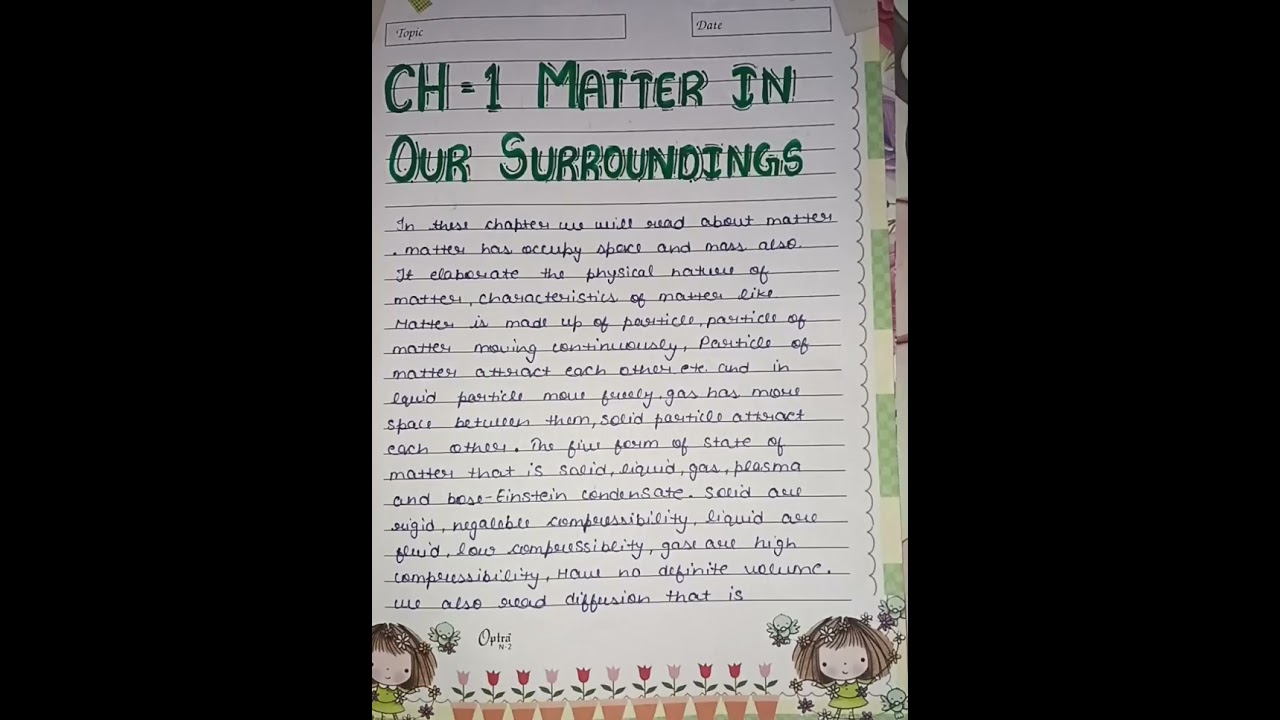 Topic
Date
CH-1 MATTER IN
OUR SURROUNDINGS
In these chapter we will read about matter
. matter has occupy space and mass also.
It elaborate the physical nature of
matter, characteristics of matter like
Matter is made up of particle, particle of
matter moving continuously, Particle of
matter attract each other etc. and in
lquid particle move freely. gas has more
space between them, solid particle attract
each other. The five form of state of
matter that is solid, liquid, gas, plasma
and bose-Einstein condensate. Solid are
rigid, negaleble compressibility, liquid are
fluid, low compressiblity, gase are high
compressibility, Have no definite volume.
we also read diffusion that is
Optra
N-2